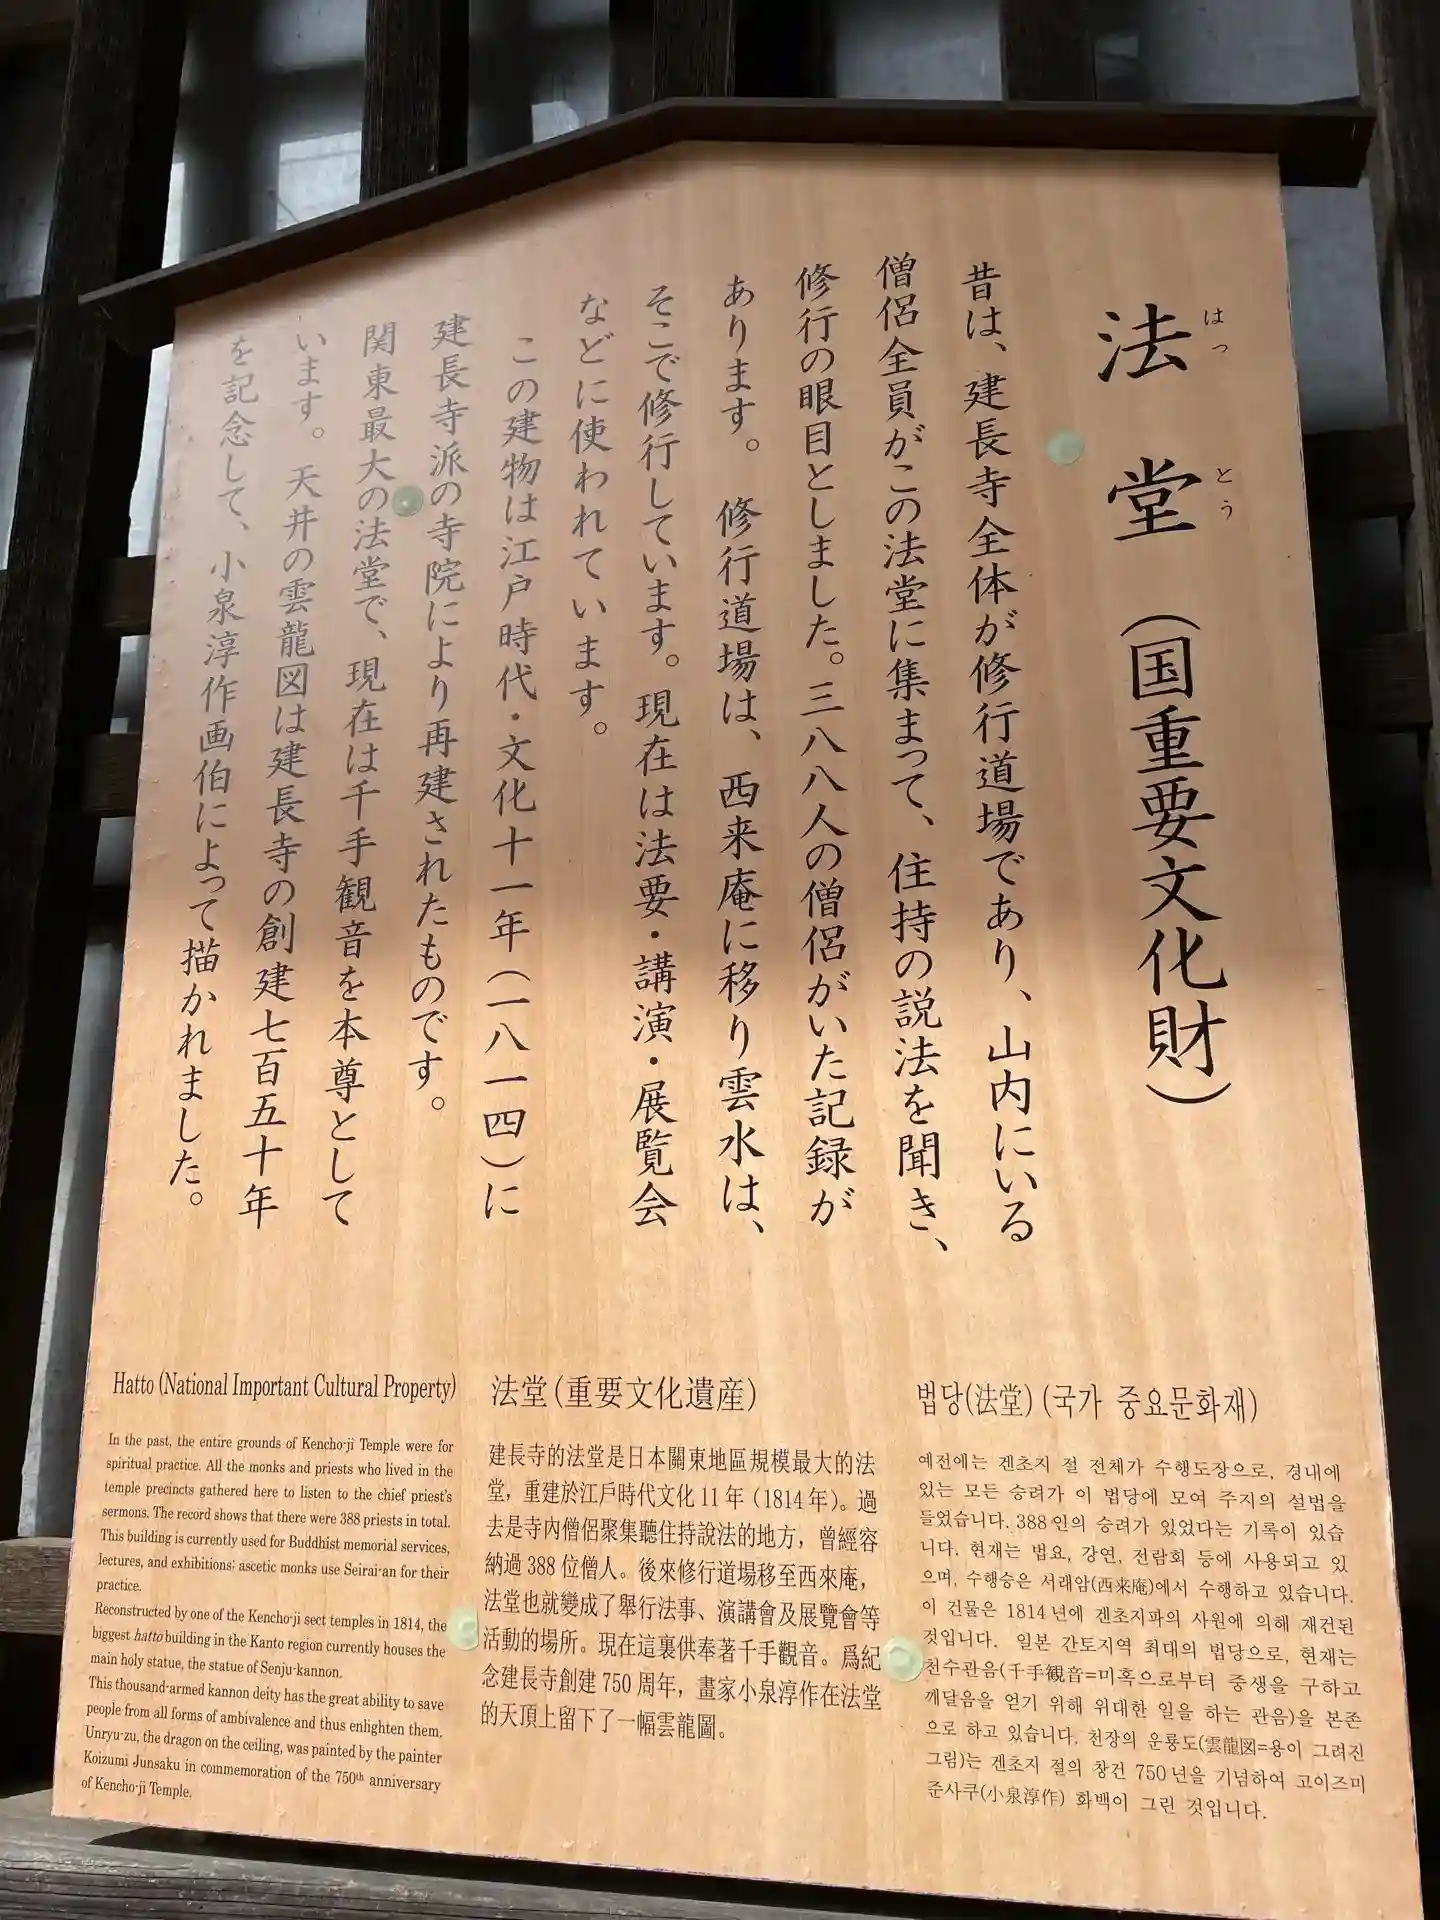 法堂（国重要文化財）
はっとう
昔は、建長寺全体が修行道場であり、山内にいる
僧侶全員がこの法堂に集まって、住持の説法を聞き、
修行の眼目としました。三八八人の僧侶がいた記録が
あります。　修行道場は、西来庵に移り雲水は、
そこで修行しています。現在は法要・講演・展覧会
などに使われています。
この建物は江戸時代・文化十一年（一八一四）に
建長寺派の寺院により再建されたものです。
関東最大の法堂で、現在は千手観音を本尊として
います。天井の雲龍図は建長寺の創建七百五十年
を記念して、小泉淳作画伯によって描かれました。
Hatto (National Important Cultural Property)
In the past, the entire grounds of Kencho-ji Temple were for
spiritual practice. All the monks and priests who lived in the
temple precincts gathered here to listen to the chief priest's
sermons. The record shows that there were 388 priests in total.
This building is currently used for Buddhist memorial services,
lectures, and exhibitions; ascetic monks use Seirai-an for their
practice.
Reconstructed by one of the Kencho-ji sect temples in 1814, the
biggest hatto building in the Kanto region currently houses the
main holy statue, the statue of Senju-kannon.
This thousand-armed kannon deity has the great ability to save
people from all forms of ambivalence and thus enlighten them.
Unryu-zu, the dragon on the ceiling, was painted by the painter
Koizumi Junsaku in commemoration of the 750th anniversary
of Kencho-ji Temple.
法堂（重要文化遺産）
建長寺的法堂是日本關東地區規模最大的法
堂，重建於江戶時代文化11年（1814年）。過
去是寺內僧侶聚集聽住持說法的地方，曾經容
納過388位僧人。後來修行道場移至西來庵，
法堂也就變成了舉行法事、演講會及展覽會等
活動的場所。現在這裏供奉著千手觀音。爲紀
念建長寺創建750周年，畫家小泉淳作在法堂
的天頂上留下了一幅雲龍圖。
법당(法堂) (국가 중요문화재)
예전에는 겐초지 절 전체가 수행도장으로, 경내에
있는 모든 승려가 이 법당에 모여 주지의 설법을
들었습니다. 388인의 승려가 있었다는 기록이 있습
니다. 현재는 법요, 강연, 전람회 등에 사용되고 있
으며, 수행승은 서래암(西来庵)에서 수행하고 있습니다.
이 건물은 1814년에 겐초지파의 사원에 의해 재건된
것입니다. 일본 간토지역 최대의 법당으로, 현재는
천수관음(千手観音=미혹으로부터 중생을 구하고
깨달음을 얻기 위해 위대한 일을 하는 관음)을 본존
으로 하고 있습니다. 천장의 운룡도(雲龍図=용이 그려진
그림)는 겐초지 절의 창건 750년을 기념하여 고이즈미
준사쿠(小泉淳作) 화백이 그린 것입니다.